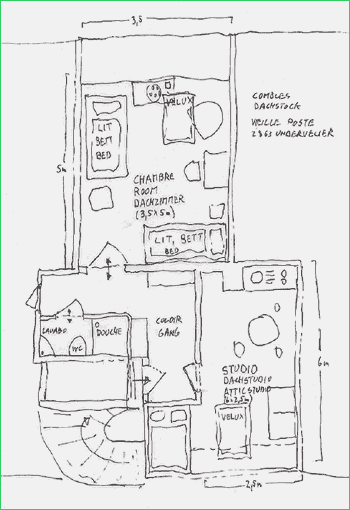 3,5
COMBLES
DACHSTOCK
VIEILLE POSTE
2863 UNDERVELIER
VELUX
LIT
BETT
BED
5m
CHAMBRE
ROOM
DACHZIMMER
(3,5x5m)
LIT, BETT
BED
LAVABO
DOUCHE
WC
COULOIR
GANG
STUDIO
DACHSTUDIO
ATTIC STUDIO
(6x2,5m)
VELUX
6m
2,5m